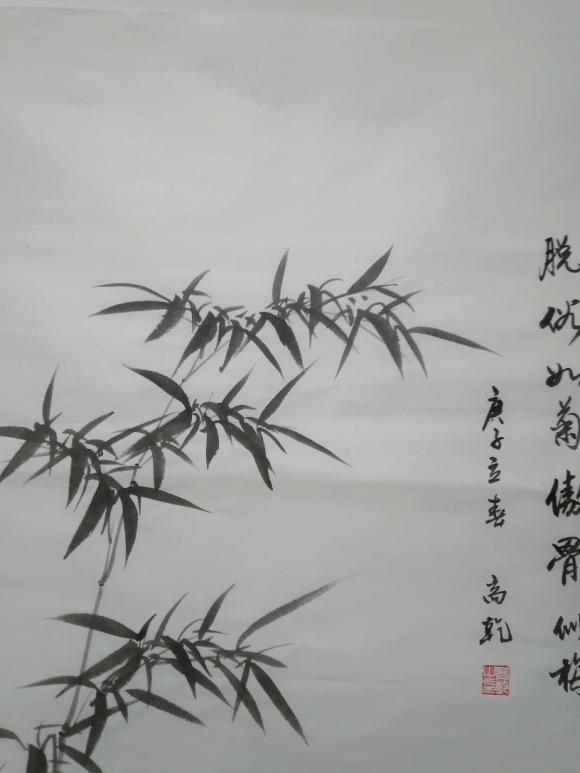 脱俗如菊傲骨似梅
庚子立春 高乾